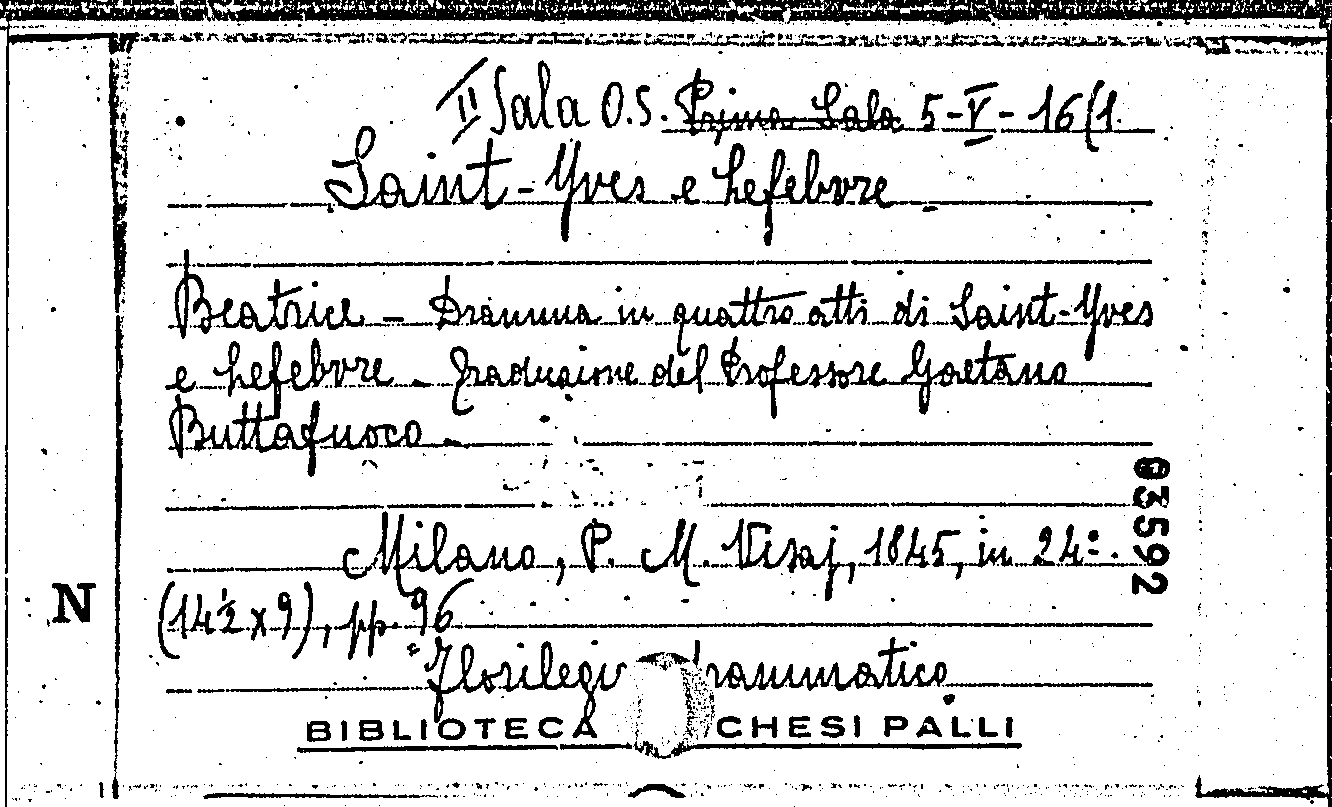 II Sala O.S. Prima Sala 5-V-16(1.
Saint-Yves e Lefebvre -
Beatrice - Dramma in quattro atti di Saint-Yves
e Lefebvre - Traduzione del Professore Gaetano
Buttafuoco -
03592
Milano, P. M. Visaj, 1845, in 24º.
N
(14½ x 9), pp. 96
"Florilegi rammatico
BIBLIOTECA CHESI PALLI